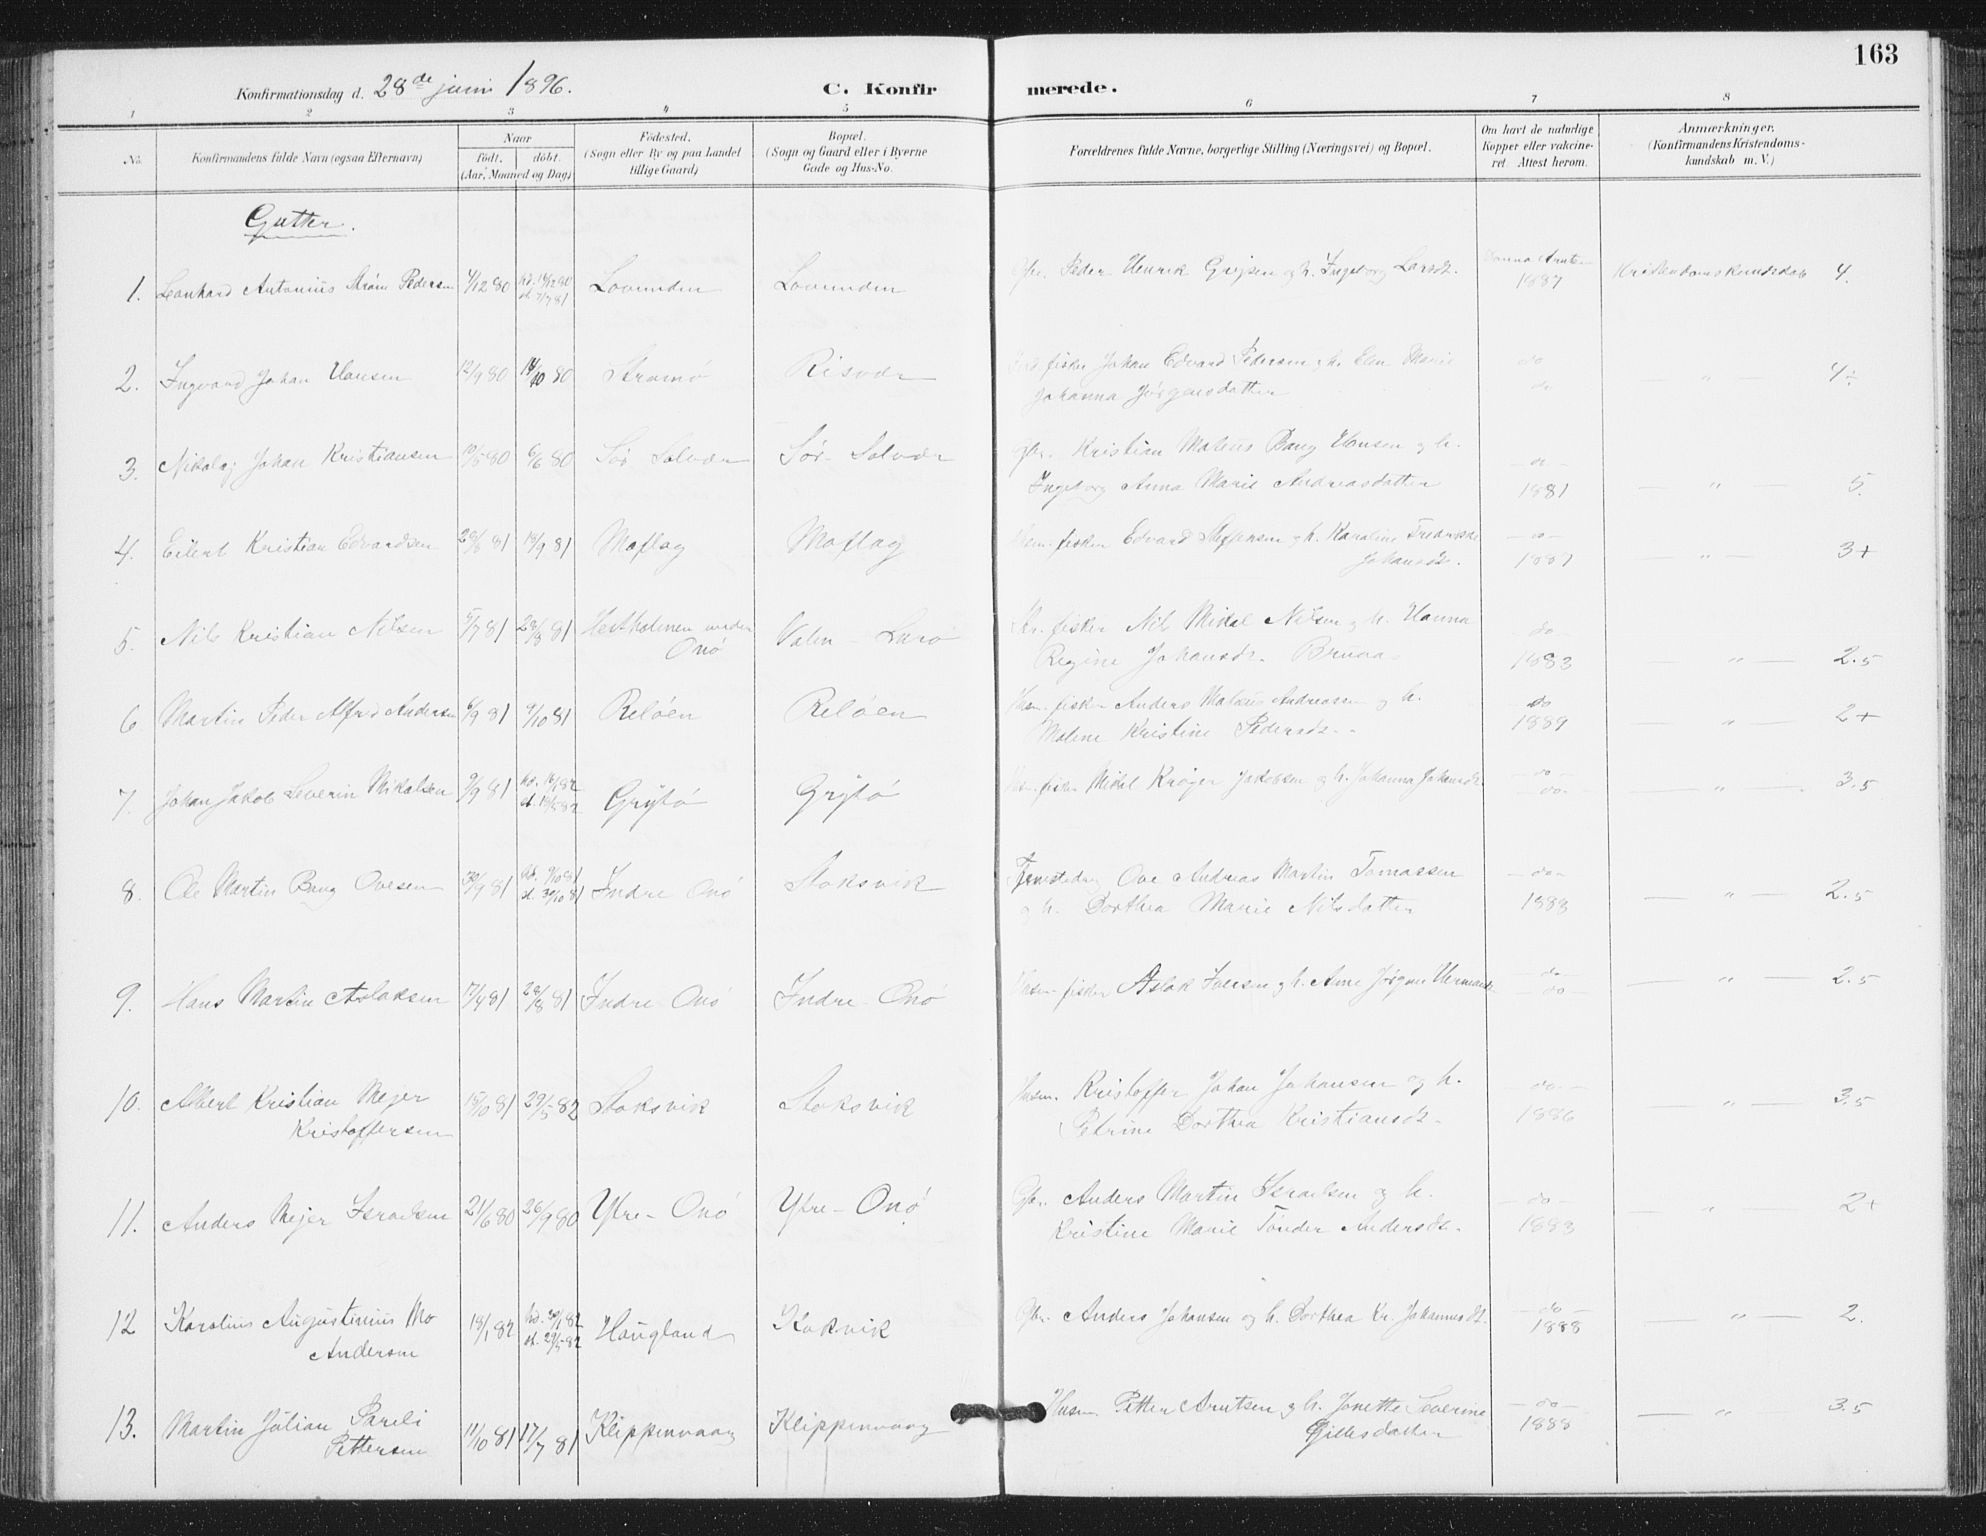 163
Konfirmationsdag d. 28de juni 1896. C. Konfirmerede.
1 2 3 4 5 6 7 8
No. Konfirmandens fulde Navn (ogsaa Efternavn) Naar Födt. döbt. (Aar, Maaned og Dag) Födested. (Sogn eller By og paa Landet tillige Gaard) Bopæl. (Sogn og Gaard eller i Byerne Gade og Hus-No. Forældrenes fulde Navne, borgerlige Stilling (Næringsvei) og Bopæl. Om havt de naturlige Kopper eller vakcineret. Attest herom. Anmærkninger. (Konfirmandens Kristendomskundskab m. V.)
Gutter.
1. Leonhard Antonius Strøm Pedersen 4/12 80 hd. 18/12 80 Lovunden Lovunden Gbr. Peder Henrik Grejsen og h. Ingeborg Larsdt. 1887 Kristendomskundskab 4.
d. 7/7 81
2. Ingvard Johan Hansen 12/9 80 14/10 80 Stromö Risvær fisker Johan Edvard Pedersen og h. Elen Marie do
Johanna Jørgensdatter do — " — 4÷
3. Nikolaj Johan Kristiansen 10/5 80 6/6 80 Sör Solvær Sör-Solvær Gbr. Kristian Mateus Bang Hansen og h. — do —
Ingeborg Anna Marie Andreasdatter 1881 — " — 5.
4. Eilert Kristian Edvardsen 29/8 81 18/9 81 Moflag Moflag Husm. fisker Edvard Steffensen og h. Karoline Fredrikke — do —
Johansdt. 1887 — " — 3+
5. Nils Kristian Nilsen 5/7 81 28/8 81 Hestholmen under Valen - Lurö fisker Nils Mikal Nilsen og h. Hanna do
Onö Regine Johansdt. 1883 — " — 2.5
6 Martin Peder Alfred Andersen 6/9 81 9/10 81 Relöen Relöen Husm. fisker Anders Mateus Andreassen og h. do
Malene Kristine Pedersdt. 1889 — " — 2+
7. Johan Jakob Severin Mikalsen 9/9 81 Grytö Grytö Husm. fisker Mikal Kröger Jakobsen og h. Johanna Johansdt. — do — — " — 3.5
— do —
8. Ole Martin Bang Ovesen 30/9 81 hd. 9/10 81 Indre Onö Stoksvik Tjenestedrg Ove Andreas Martin Tomassen — do —
d. 30/10 81 og h. Dorthea Marie Nilsdatter 1888 — " — 2.5
9. Hans Martin Aslaksen 17/4 81 28/8 81 Indre Onö Indre-Onö Husm. fisker Aslak Iversen og h. Anne Jørgine Hermansdt. — do — — " — 2.5
— do —
10. Albert Kristian Mejer 15/10 81 29/5 82 Stoksvik Stoksvik Husm. Kristoffer Johan Johansen og h. — do —
Kristoffersen Petrine Dorthea Kristiansdt. 1886 — " — 3.5
11. Anders Mejer Israelsen 21/6 80 26/9 80 Ytre-Onö Ytre-Onö Gbr. Anders Martin Israelsen og h. — do —
Kristine Marie Tönder Andersdt. 1883 — " — 2+
12 Karolius Augustinius Mo 18/1 82 hd. 30/1 82 Haugland Kokvik Gbr. Anders Johansen og h. Dorthea Kr. Johannesdt. — do — — " — 2.
Andersen d. 29/5 82 1888
13. Martin Julian Pareli 11/10 81 17/7 81 Klippenvaag Klippenvaag Husm Petter Arntsen og h. Jonette Severine — do — — " — 3.5
Pettersen Gillesdatter 1888